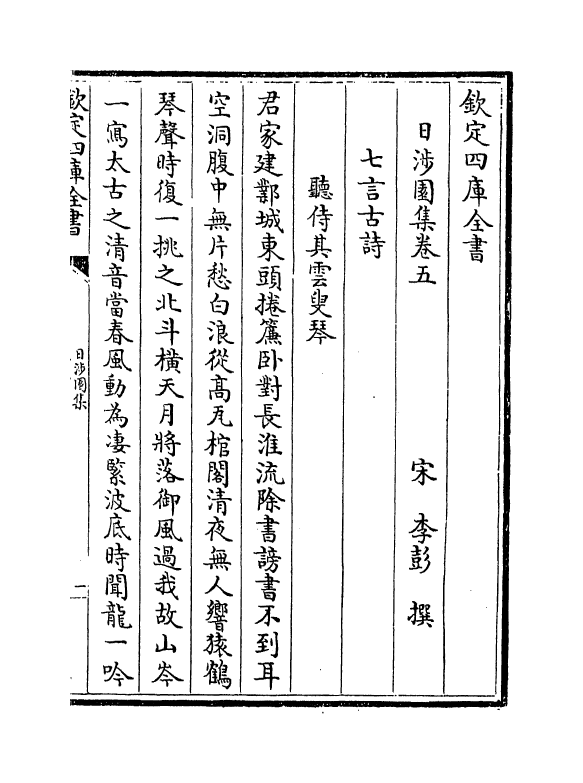 欽定四庫全書
日涉園集卷五
宋 李彭 撰
七言古詩
聽侍其雲叟琴
君家建鄴城東頭捲簾卧對長淮流除書謗書不到耳
空洞腹中無片愁白浪從高瓦棺閣清夜無人響猿鶴
琴聲時復一挑之北斗橫天月將落御風過我故山岑
一寫太古之清音當春風動為凄緊波底時聞龍一吟
欽定四庫全書
日涉園集
一